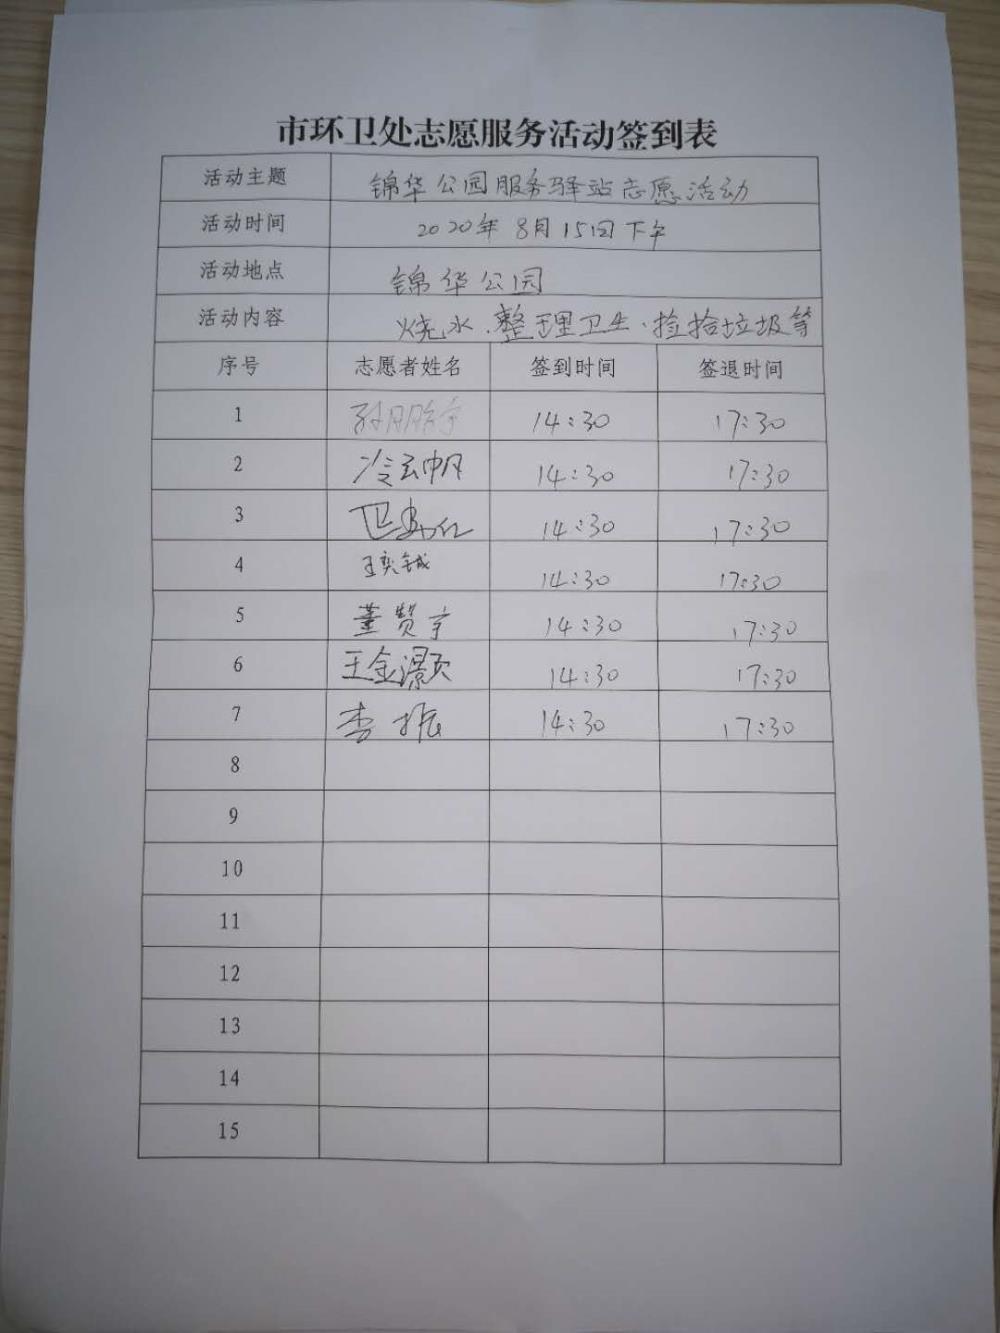 市环卫处志愿服务活动签到表
活动主题 锦华公园服务驿站志愿活动
活动时间 2020年8月15日下午
活动地点 锦华公园
活动内容 烧水、整理卫生、捡拾垃圾等
序号 志愿者姓名 签到时间 签退时间
1 14:30 17:30
2 冷云帆 14:30 17:30
3 14:30 17:30
4 王奕铖 14:30 17:30
5 董赞宇 14:30 17:30
6 王金灏 14:30 17:30
7 李振 14:30 17:30
8
9
10
11
12
13
14
15